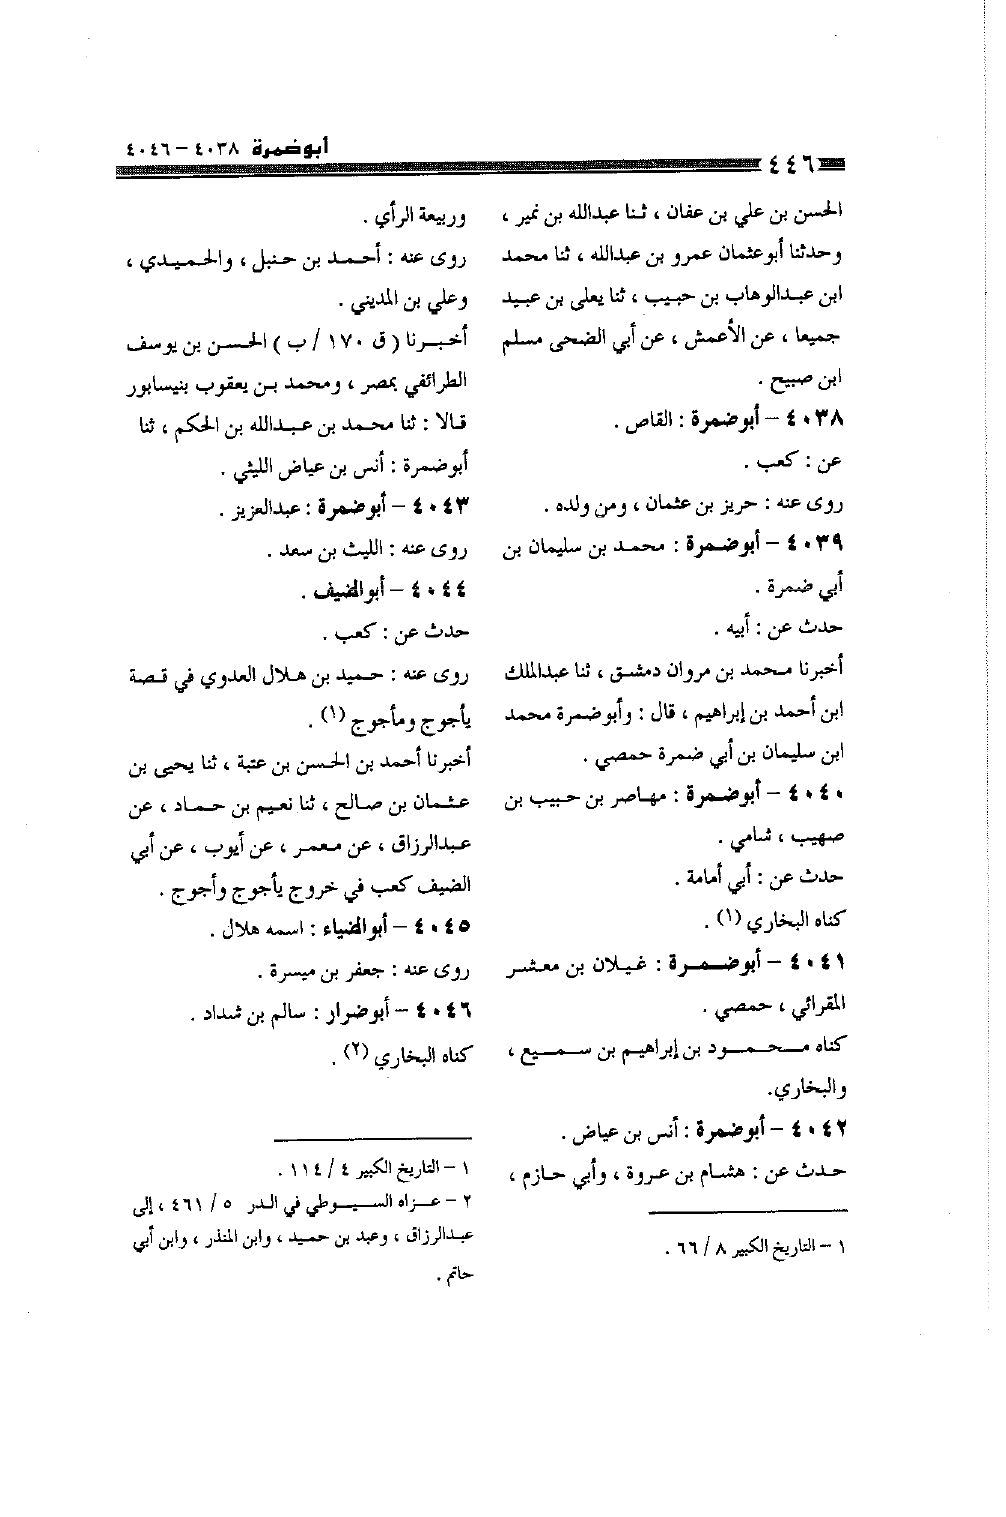 أبوضمرة ٤٠٣٨ – ٤٠٤٦
٤٤٦
الحسن بن علي بن عفان ، ثنا عبدالله بن نمير ،
وحدثنا أبوعثمان عمرو بن عبدالله ، ثنا محمد
ابن عبدالوهاب بن حبيب ، ثنا يعلى بن عبيد
جميعا ، عن الأعمش ، عن أبي الضحى مسلم
ابن صبيح .
٤٠٣٨ – أبوضمرة : القاص .
عن : كعب .
روى عنه : حريز بن عثمان ، ومن ولده .
٤٠٣٩ – أبوضمرة : محمد بن سليمان بن
أبي ضمرة .
حدث عن : أبيه .
أخبرنا محمد بن مروان دمشق ، ثنا عبدالملك
ابن أحمد بن إبراهيم ، قال : وأبوضمرة محمد
ابن سليمان بن أبي ضمرة حمصي .
٤٠٤٠ – أبوضمرة : مهاصر بن حبيب بن
صهيب ، شامي .
حدث عن : أبي أمامة .
كناه البخاري (١) .
٤٠٤١ – أبوضمرة : غيلان بن معشر
المقرائي ، حمصي .
كناه محمود بن إبراهيم بن سميع ،
والبخاري.
٤٠٤٢ – أبوضمرة : أنس بن عياض .
حدث عن : هشام بن عروة ، وأبي حازم ،
١ – التاريخ الكبير ٨ / ٦٦ .
وربيعة الرأي .
روى عنه : أحمد بن حنبل ، والحميدي ،
وعلي بن المديني .
أخبرنا ( ق ١٧٠ / ب ) الحسن بن يوسف
الطرائفي بمصر ، ومحمد بن يعقوب بنيسابور
قالا : ثنا محمد بن عبدالله بن الحكم ، ثنا
أبوضمرة : أنس بن عياض الليثي .
٤٠٤٣ – أبوضمرة : عبدالعزيز .
روى عنه : الليث بن سعد .
٤٠٤٤ – أبوالضيف .
حدث عن : كعب .
روى عنه : حميد بن هلال العدوي في قصة
يأجوج ومأجوج (١) .
أخبرنا أحمد بن الحسن بن عتبة ، ثنا يحيى بن
عثمان بن صالح ، ثنا نعيم بن حماد ، عن
عبدالرزاق ، عن معمر ، عن أيوب ، عن أبي
الضيف كعب في خروج يأجوج وأجوج .
٤٠٤٥ – أبوالضياء : اسمه هلال .
روى عنه : جعفر بن ميسرة .
٤٠٤٦ – أبوضرار : سالم بن شداد .
كناه البخاري (٢) .
١ – التاريخ الكبير ٤ / ١١٤ .
٢ – عزاه السيوطي في الدر ٥ / ٤٦١ ، إلى
عبدالرزاق ، وعبد بن حميد ، وابن المنذر ، وابن أبي
حاتم .